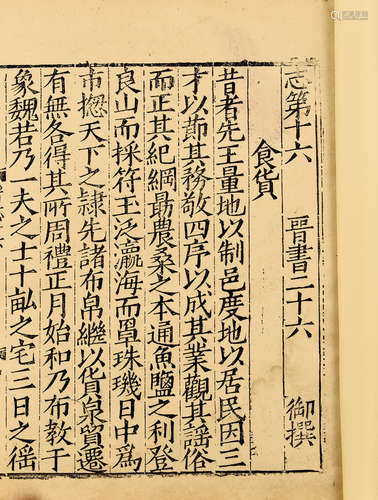 志第十六 晉書二十六 御撰
食貨
昔者先王量地以制邑度地以居民因三
才以節其務敬四序以成其業觀其謡俗
而正其紀綱勗農桑之本通魚鹽之利登
良山而採符玉泛瀛海而罩珠璣日中爲
市揔天下之隷先諸布帛繼以貨泉貿遷
有無各得其所周禮正月始和乃布教于
象魏若乃一夫之士十畝之宅三日之徭